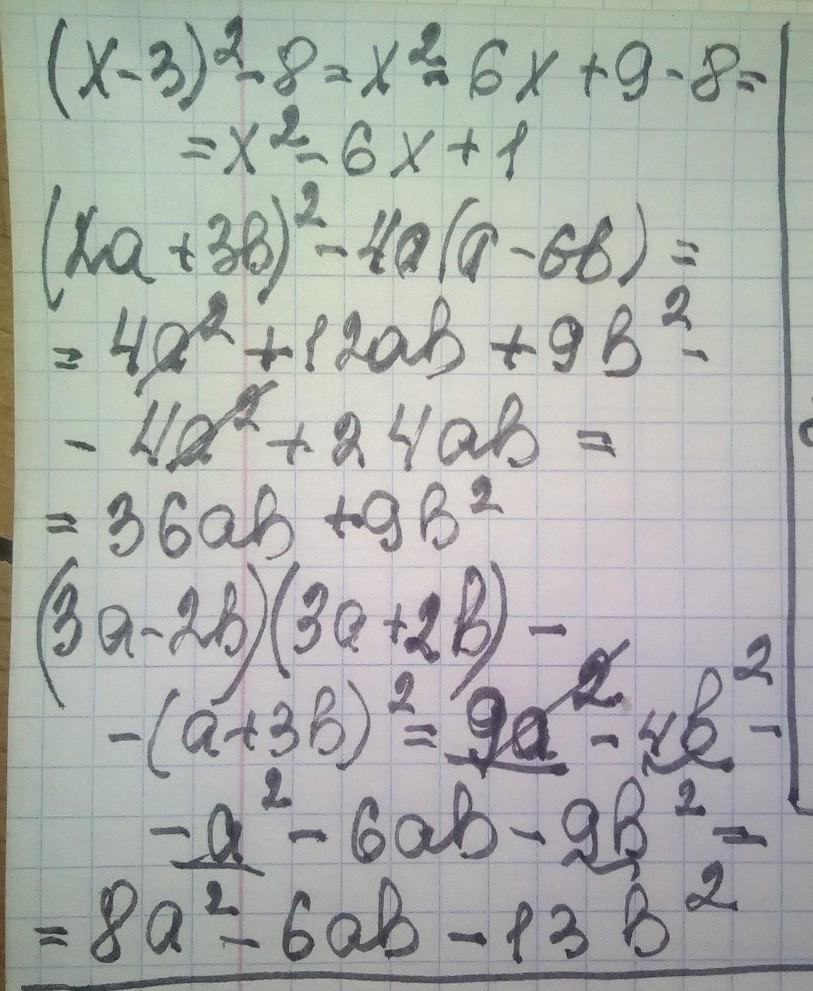 (x-3)²-8=x²-6x+9-8=
=x²-6x+1
(2a+3b)²-4a(a-6b)=
=4a²+12ab+9b²-
-4a²+24ab=
=36ab+9b²
(3a-2b)(3a+2b)-
-(a+3b)²=9a²-4b²-
-a²-6ab-9b²=
=8a²-6ab-13b²